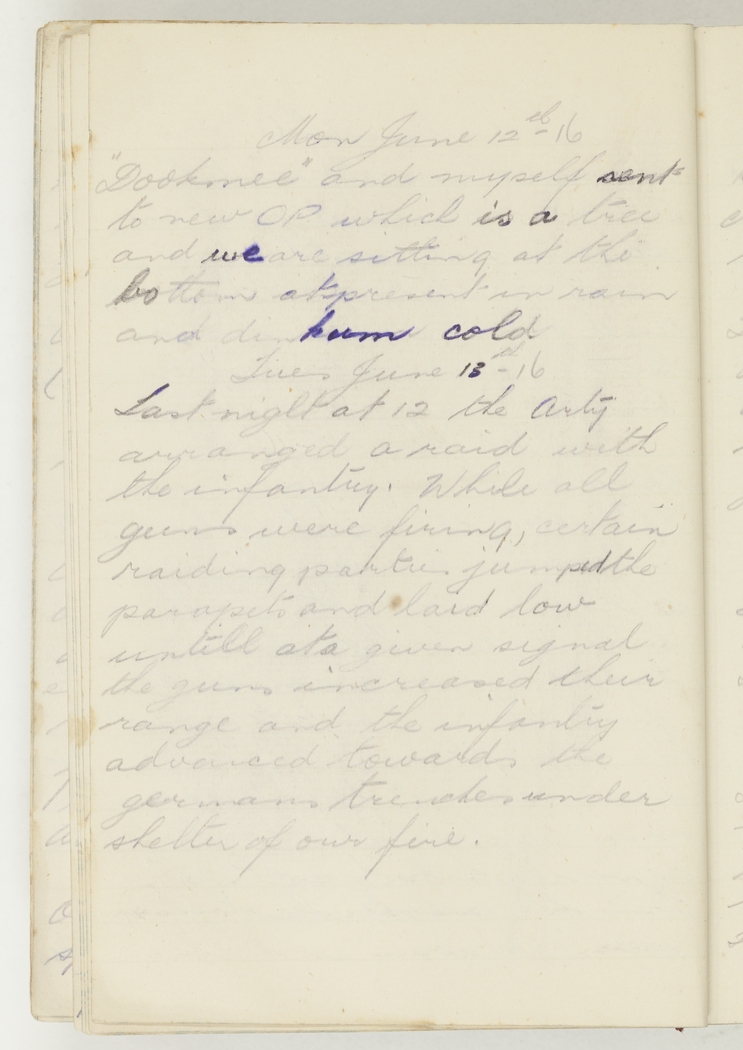 Mon June 12th - 16
"Dookmee" and myself sent
to new OP which is a tree
and we are sitting at the
bottom at present in rain
and dinkum cold
Tues June 13th - 16
Last night at 12 the Arty
arranged a raid with
the infantry. While all
guns were firing, certain
raiding parties jumped the
parapets and laid low
untill at a given signal
the guns increased their
range and the infantry
advanced towards the
germans trenches under
shelter of our fire.